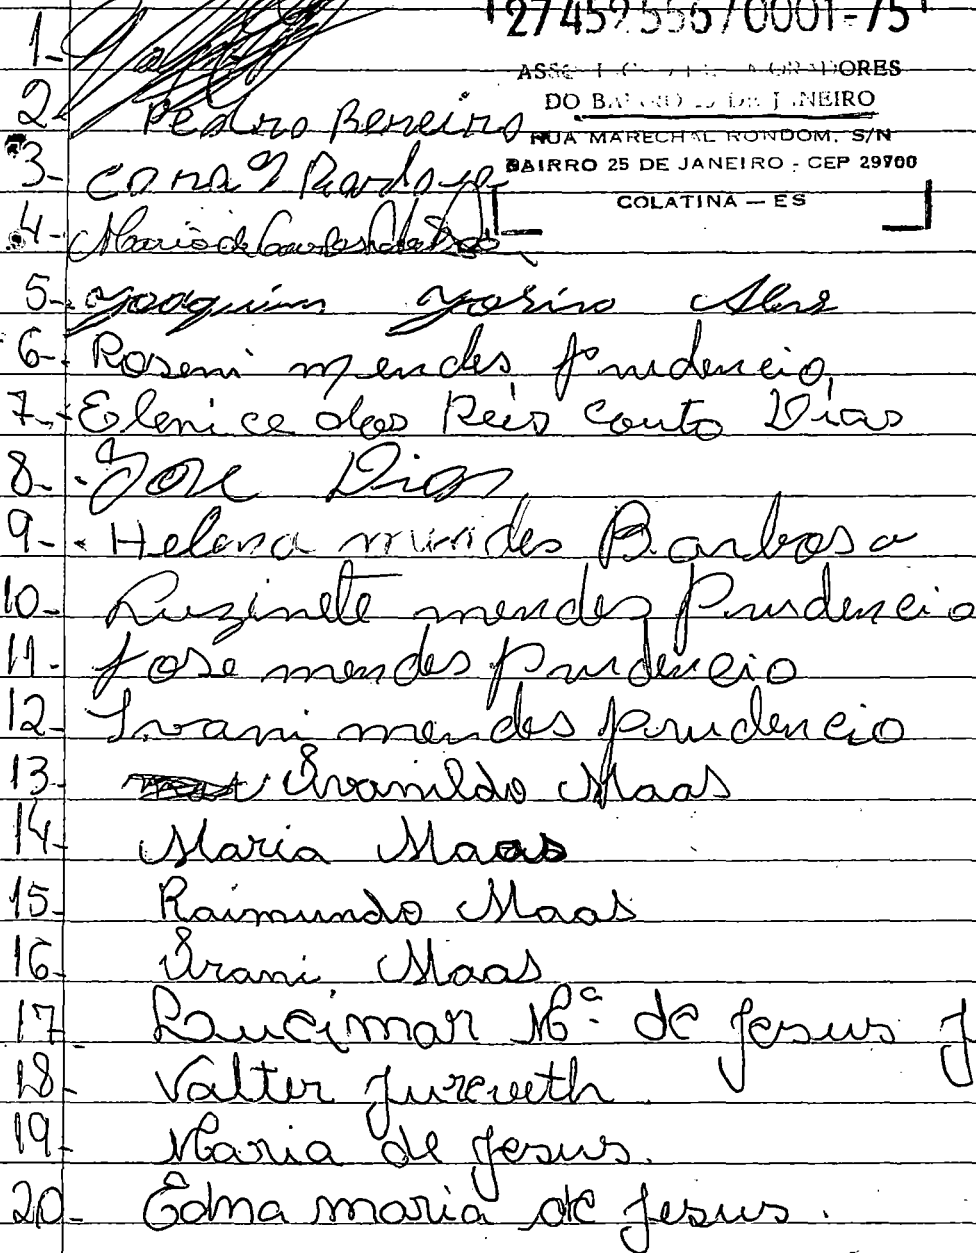 27452556/0001-75
DORES
DO JANEIRO
RUA MARECHAL RONDOM, S/N
BAIRRO 25 DE JANEIRO - CEP 29700
COLATINA - ES
1-
2- Pedro Pereira
3-
4- Maria de
5- Joaquim Alves
6- Roseni mendes prudencio
7- Elenice dos Reis Couto Dias
8- José Dias
9- Helena mendes Barbosa
10- Luzinete mendes Prudencio
11- Jose mendes prudencio
12- Ivani mendes prudencio
13- Ivanildo Maas
14- Maria Maas
15- Raimundo Maas
16- Irani Maas
17- Lucimar Mª de Jesus J
18- Valter
19- Maria de Jesus.
20- Edna maria de Jesus.